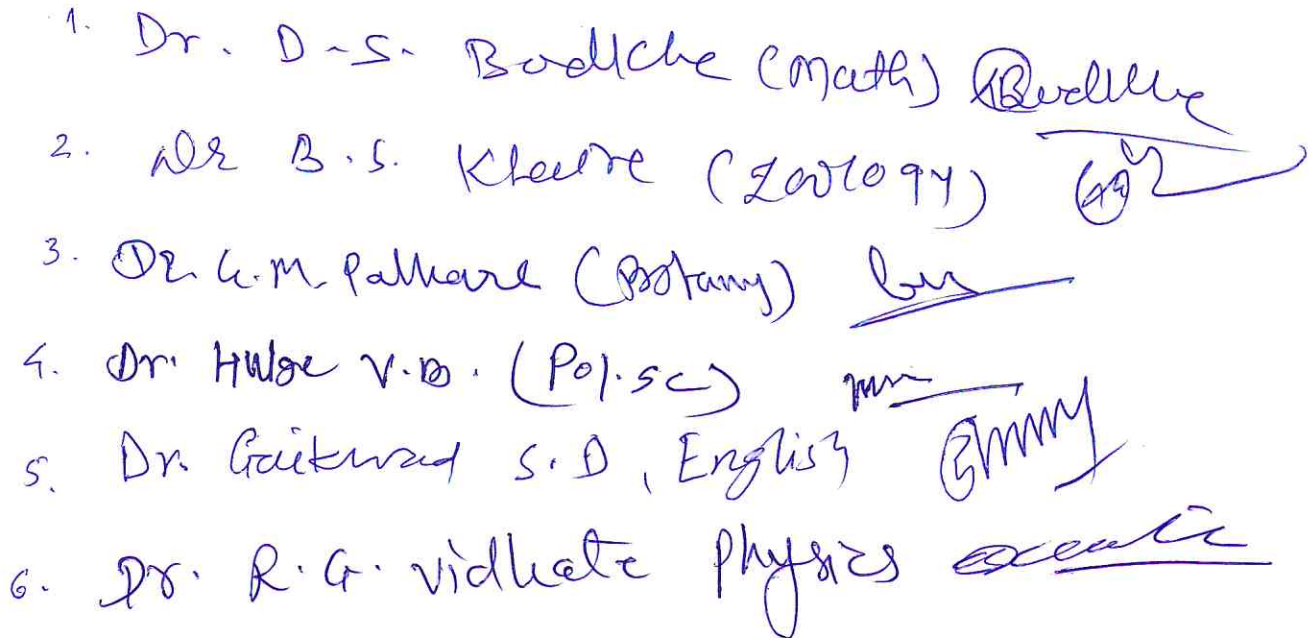 1. Dr. D-S. Bodkhe (Math)
2. Dr B.S. Khaire (Zoology)
3. Dr. G.M. Palhare (Botany)
4. Dr. Hulge V.B. (Pol.sc)
5. Dr. Gaikwad S.D, English
6. Dr. R.G. Vidhate Physics